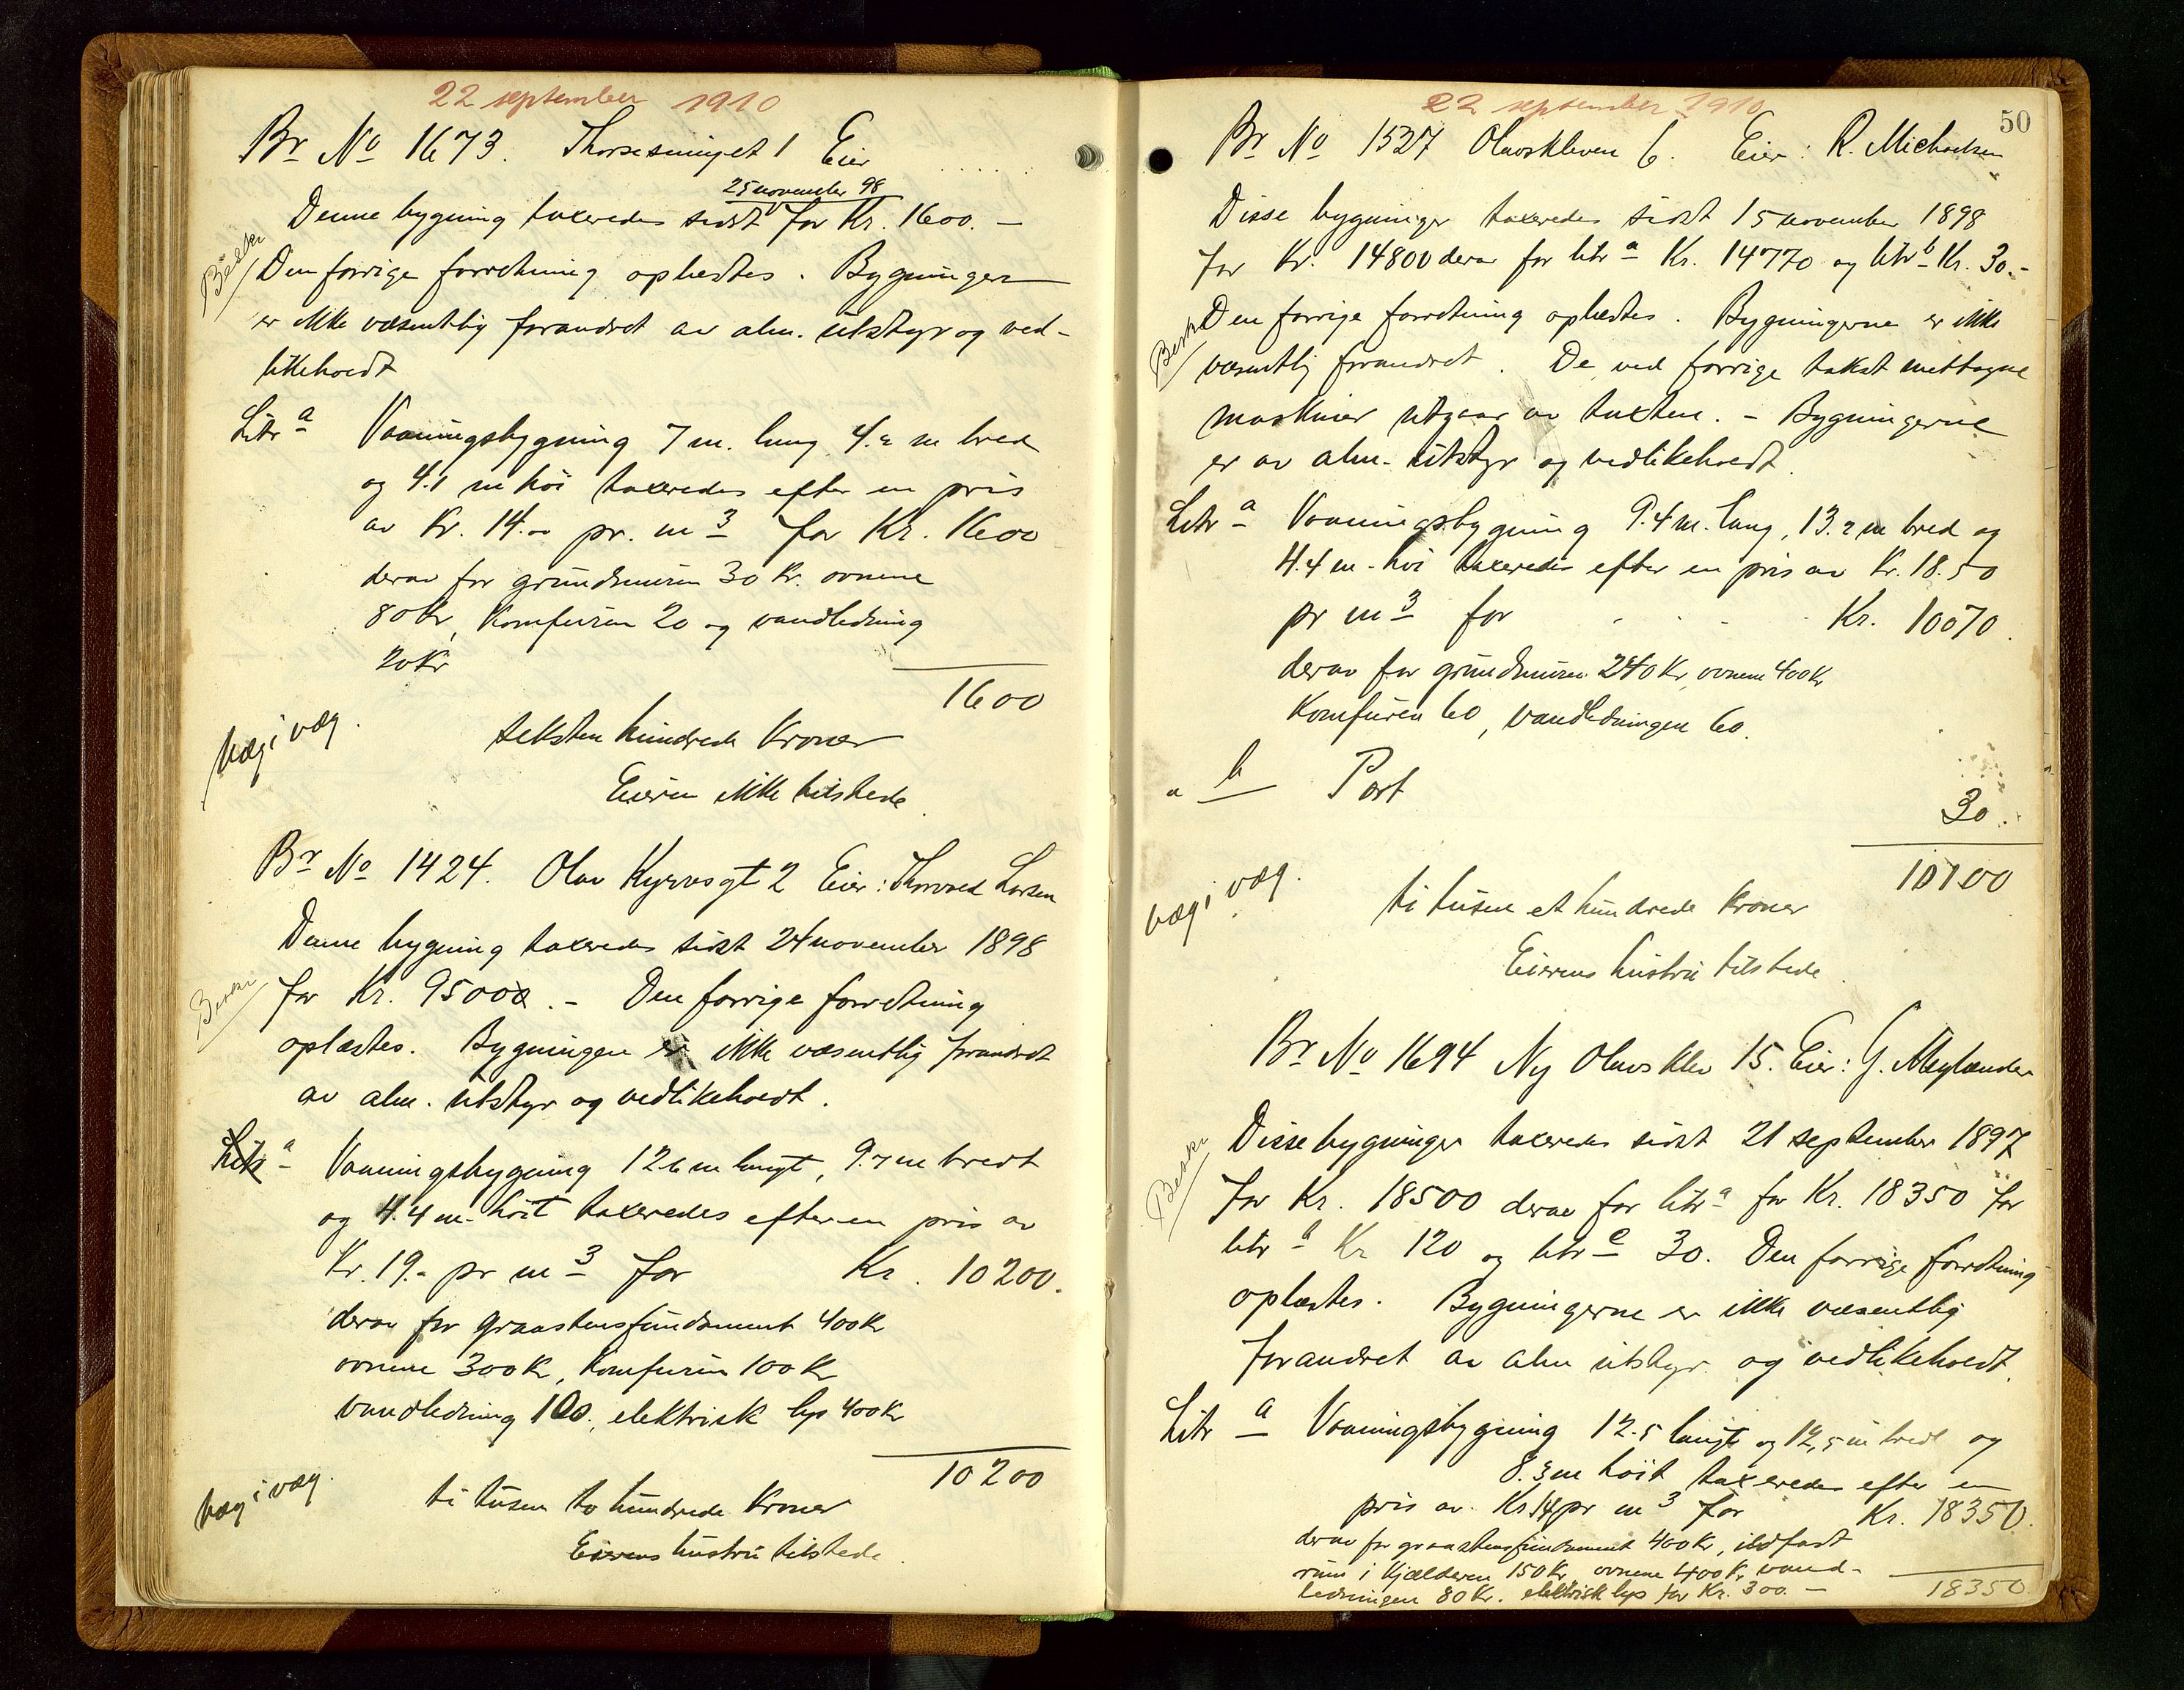 22 september 1910
Br No 1673. Thorsesmuget 1 Eier .....
25 november 98
Denne bygning taxeredes sidst for Kr. 1600. –
Beskr
Den forrige forretning oplæstes. Bygningen
er ikke væsentlig forandret av alm. utstyr og ved-
likeholdt
Litr a Vaaningsbygning 7 m. lang 4.2 m bred
og 4.1 m høi taxeredes efter en pris
av Kr. 14.00 pr. m3 for Kr. 1600
derav for grundmuren 30 Kr. ovnene
80 Kr, Komfuren 20 og vandledning
20 Kr
1600
væg i væg.
seksten hundrede Kroner
Eieren ikke tilstede.
Br No 1424. Olav Kyrresgt 2 Eier: Thorvald Larsen
Denne bygning taxeredes sidst 24 november 1898
for Kr. 9500. – Den forrige forretning
Beskr
oplæstes. Bygningen er ikke væsentlig forandret
av alm. utstyr og vedlikeholdt.
Litr a – Vaaningsbygning 12.6 m langt, 9.7 m bredt
og 4.4 m. høit taxeredes efter en pris av
Kr. 19.- pr m3 for Kr. 10200.
derav for graastensfundament 400 Kr
ovnene 300 Kr, Komfuren 100 Kr
vandledning 100, elektrisk lys 400 Kr
10200
væg i væg.
ti tusen to hundrede Kroner
Eierens hustru tilstede.
50
22 september 1910
Br No 1527 Olavskleven 6. Eier: R. Michaelsen
Disse bygninger taxeredes sidst 15 november 1898
for Kr. 14800 derav for litr a Kr. 14770 og litr b Kr. 30.-
Beskr
Den forrige forretning oplæstes. Bygningerne er ikke
væsentlig forandret. De ved forrige takst mettagne
maskiner utgaar av taxten. – Bygningerne
er av alm. utstyr og vedlikeholdt.
Litr a Vaaningsbygning 9.4 m. lang, 13.2 m bred og
4.4 m. høi taxeredes efter en pris av Kr. 18.50
pr m3 for . . . . Kr. 10070.
derav for grundmuren 240 Kr, ovnene 400 Kr
Komfuren 60, vandledningen 60.
" b Port
30.
10100
væg i væg.
ti tusen et hundrede Kroner
Eierens hustru tilstede.
Br No 1694 Ny Olavsklev 15. Eier: G. Meylænder
Disse bygninger taxeredes sidst 21 september 1897
Beskr
for Kr. 18500 derav for litr a for Kr. 18350 for
litr b Kr 120 og litr c 30. Den forrige forretning
oplæstes. Bygningerne er ikke væsentlig
forandret av alm utstyr og vedlikeholdt.
Litr a Vaaningsbygning 12.5 langt og 12,5 m bredt og
8.3 m høit taxeredes efter en
pris av Kr 14 pr m3 for Kr. 18350.
derav for graastensfundament 400 Kr, ildfast
rum i Kjælderen 150 Kr, ovnene 400 Kr, vand-
ledningen 80 Kr. elektrisk lys for Kr. 300. –
18350